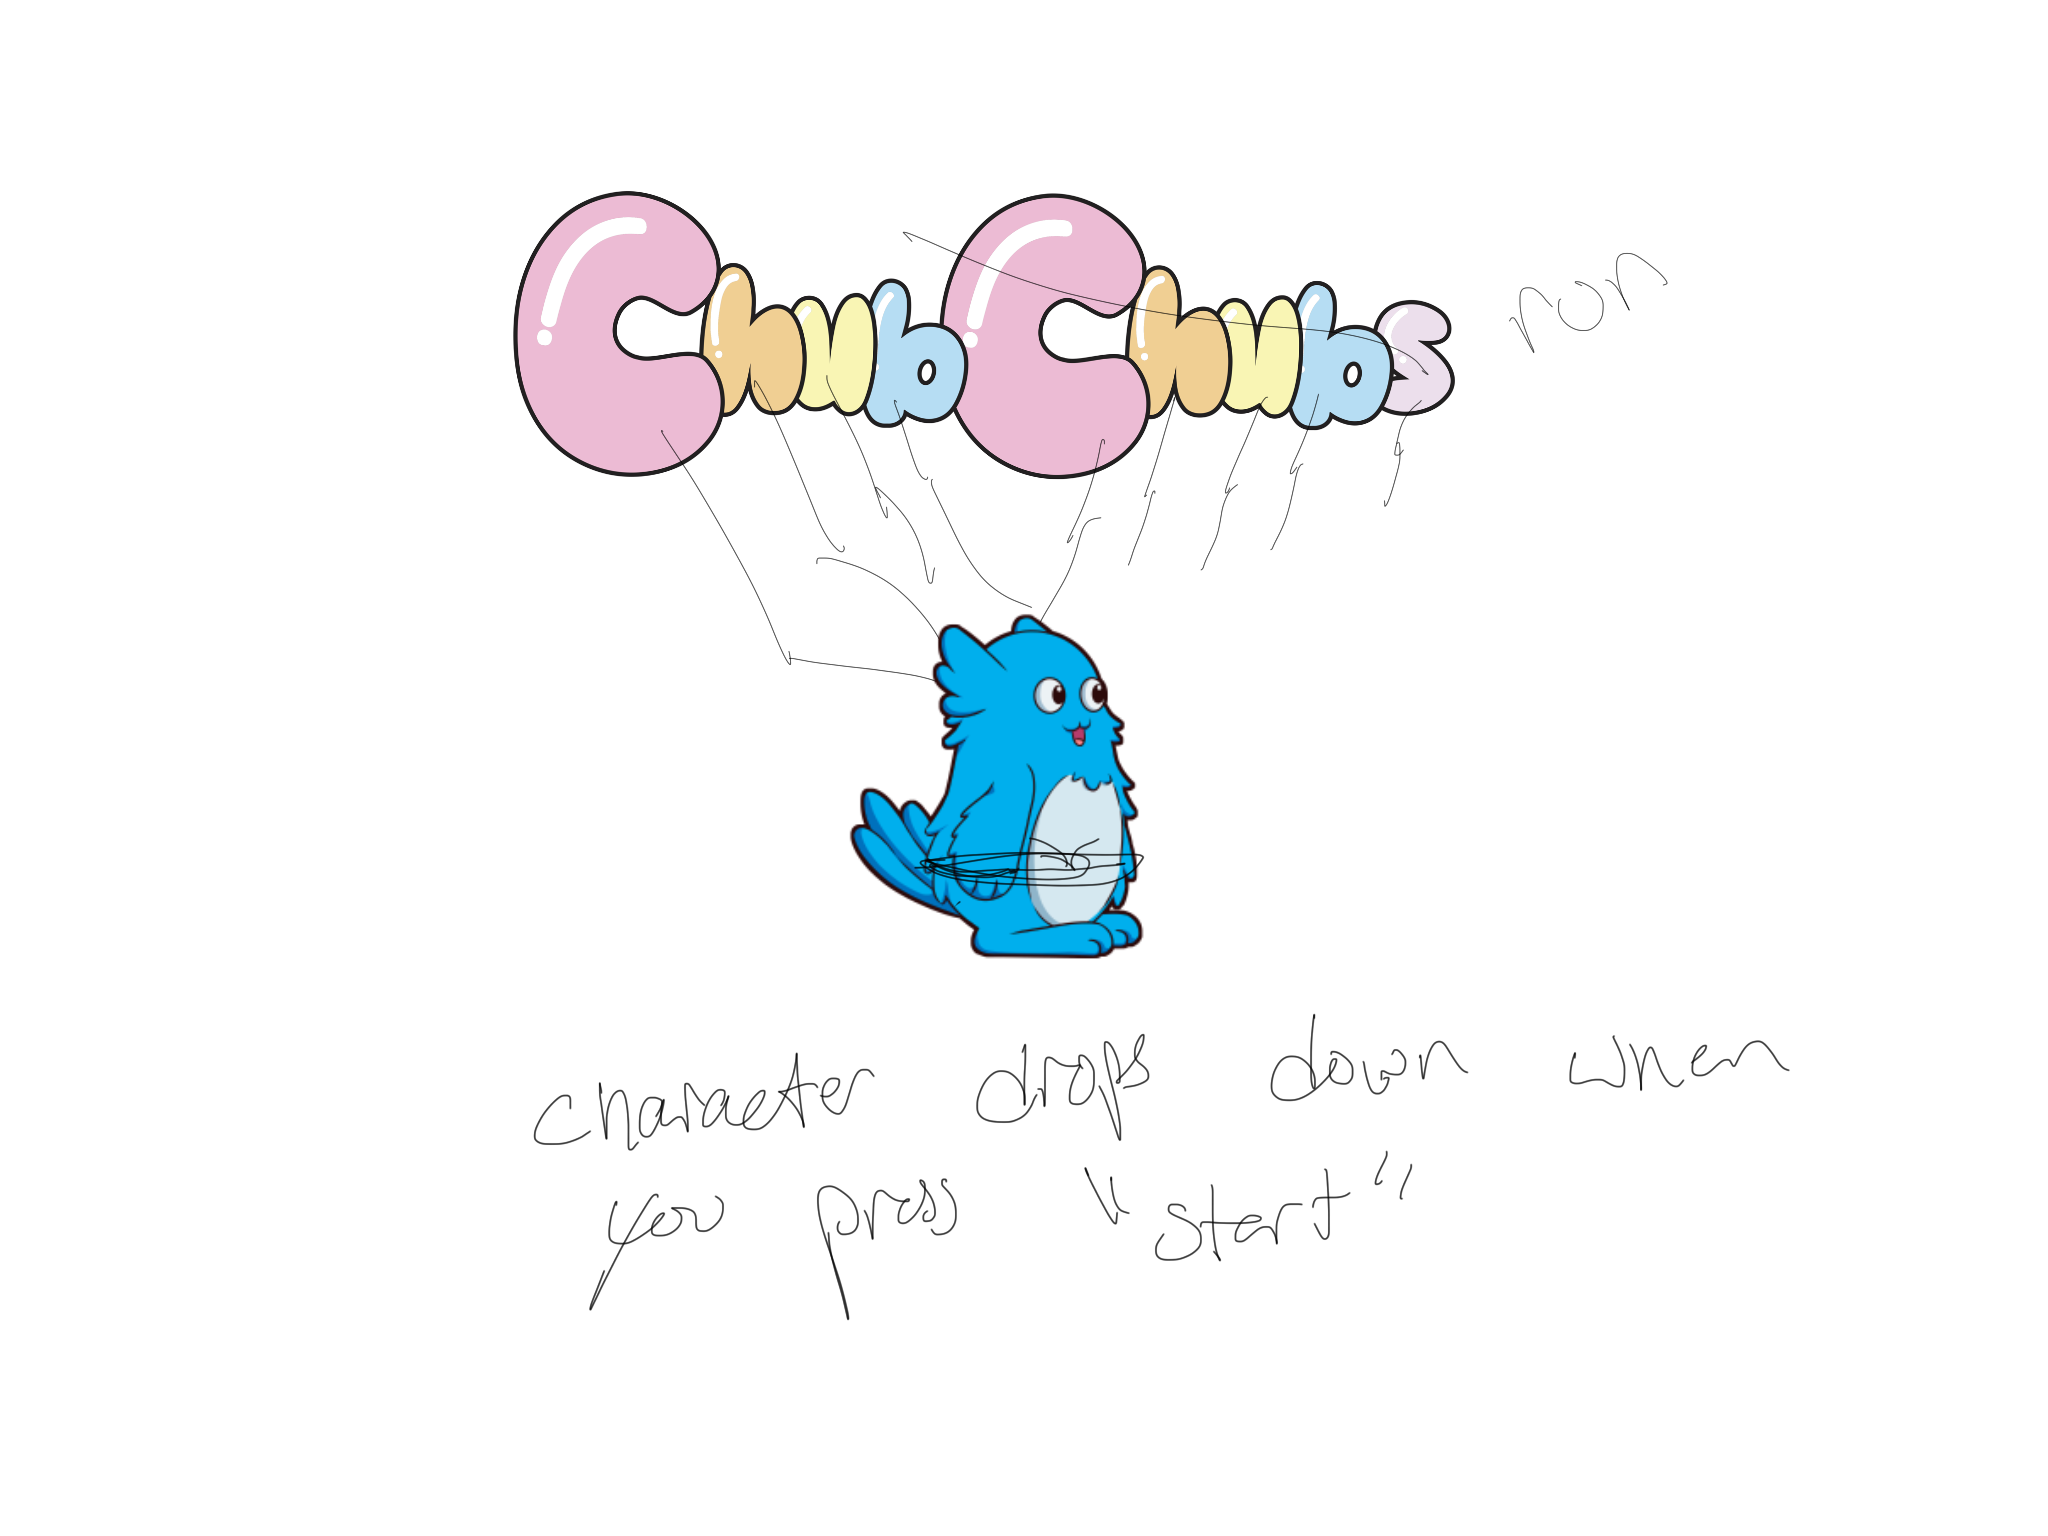 ChubChubs
run
character drops down when
you press "start"